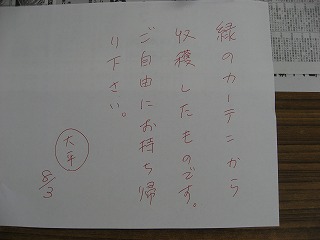 緑のカーテンから
収穫したものです。
ご自由にお持ち帰
り下さい。
大平
8/3